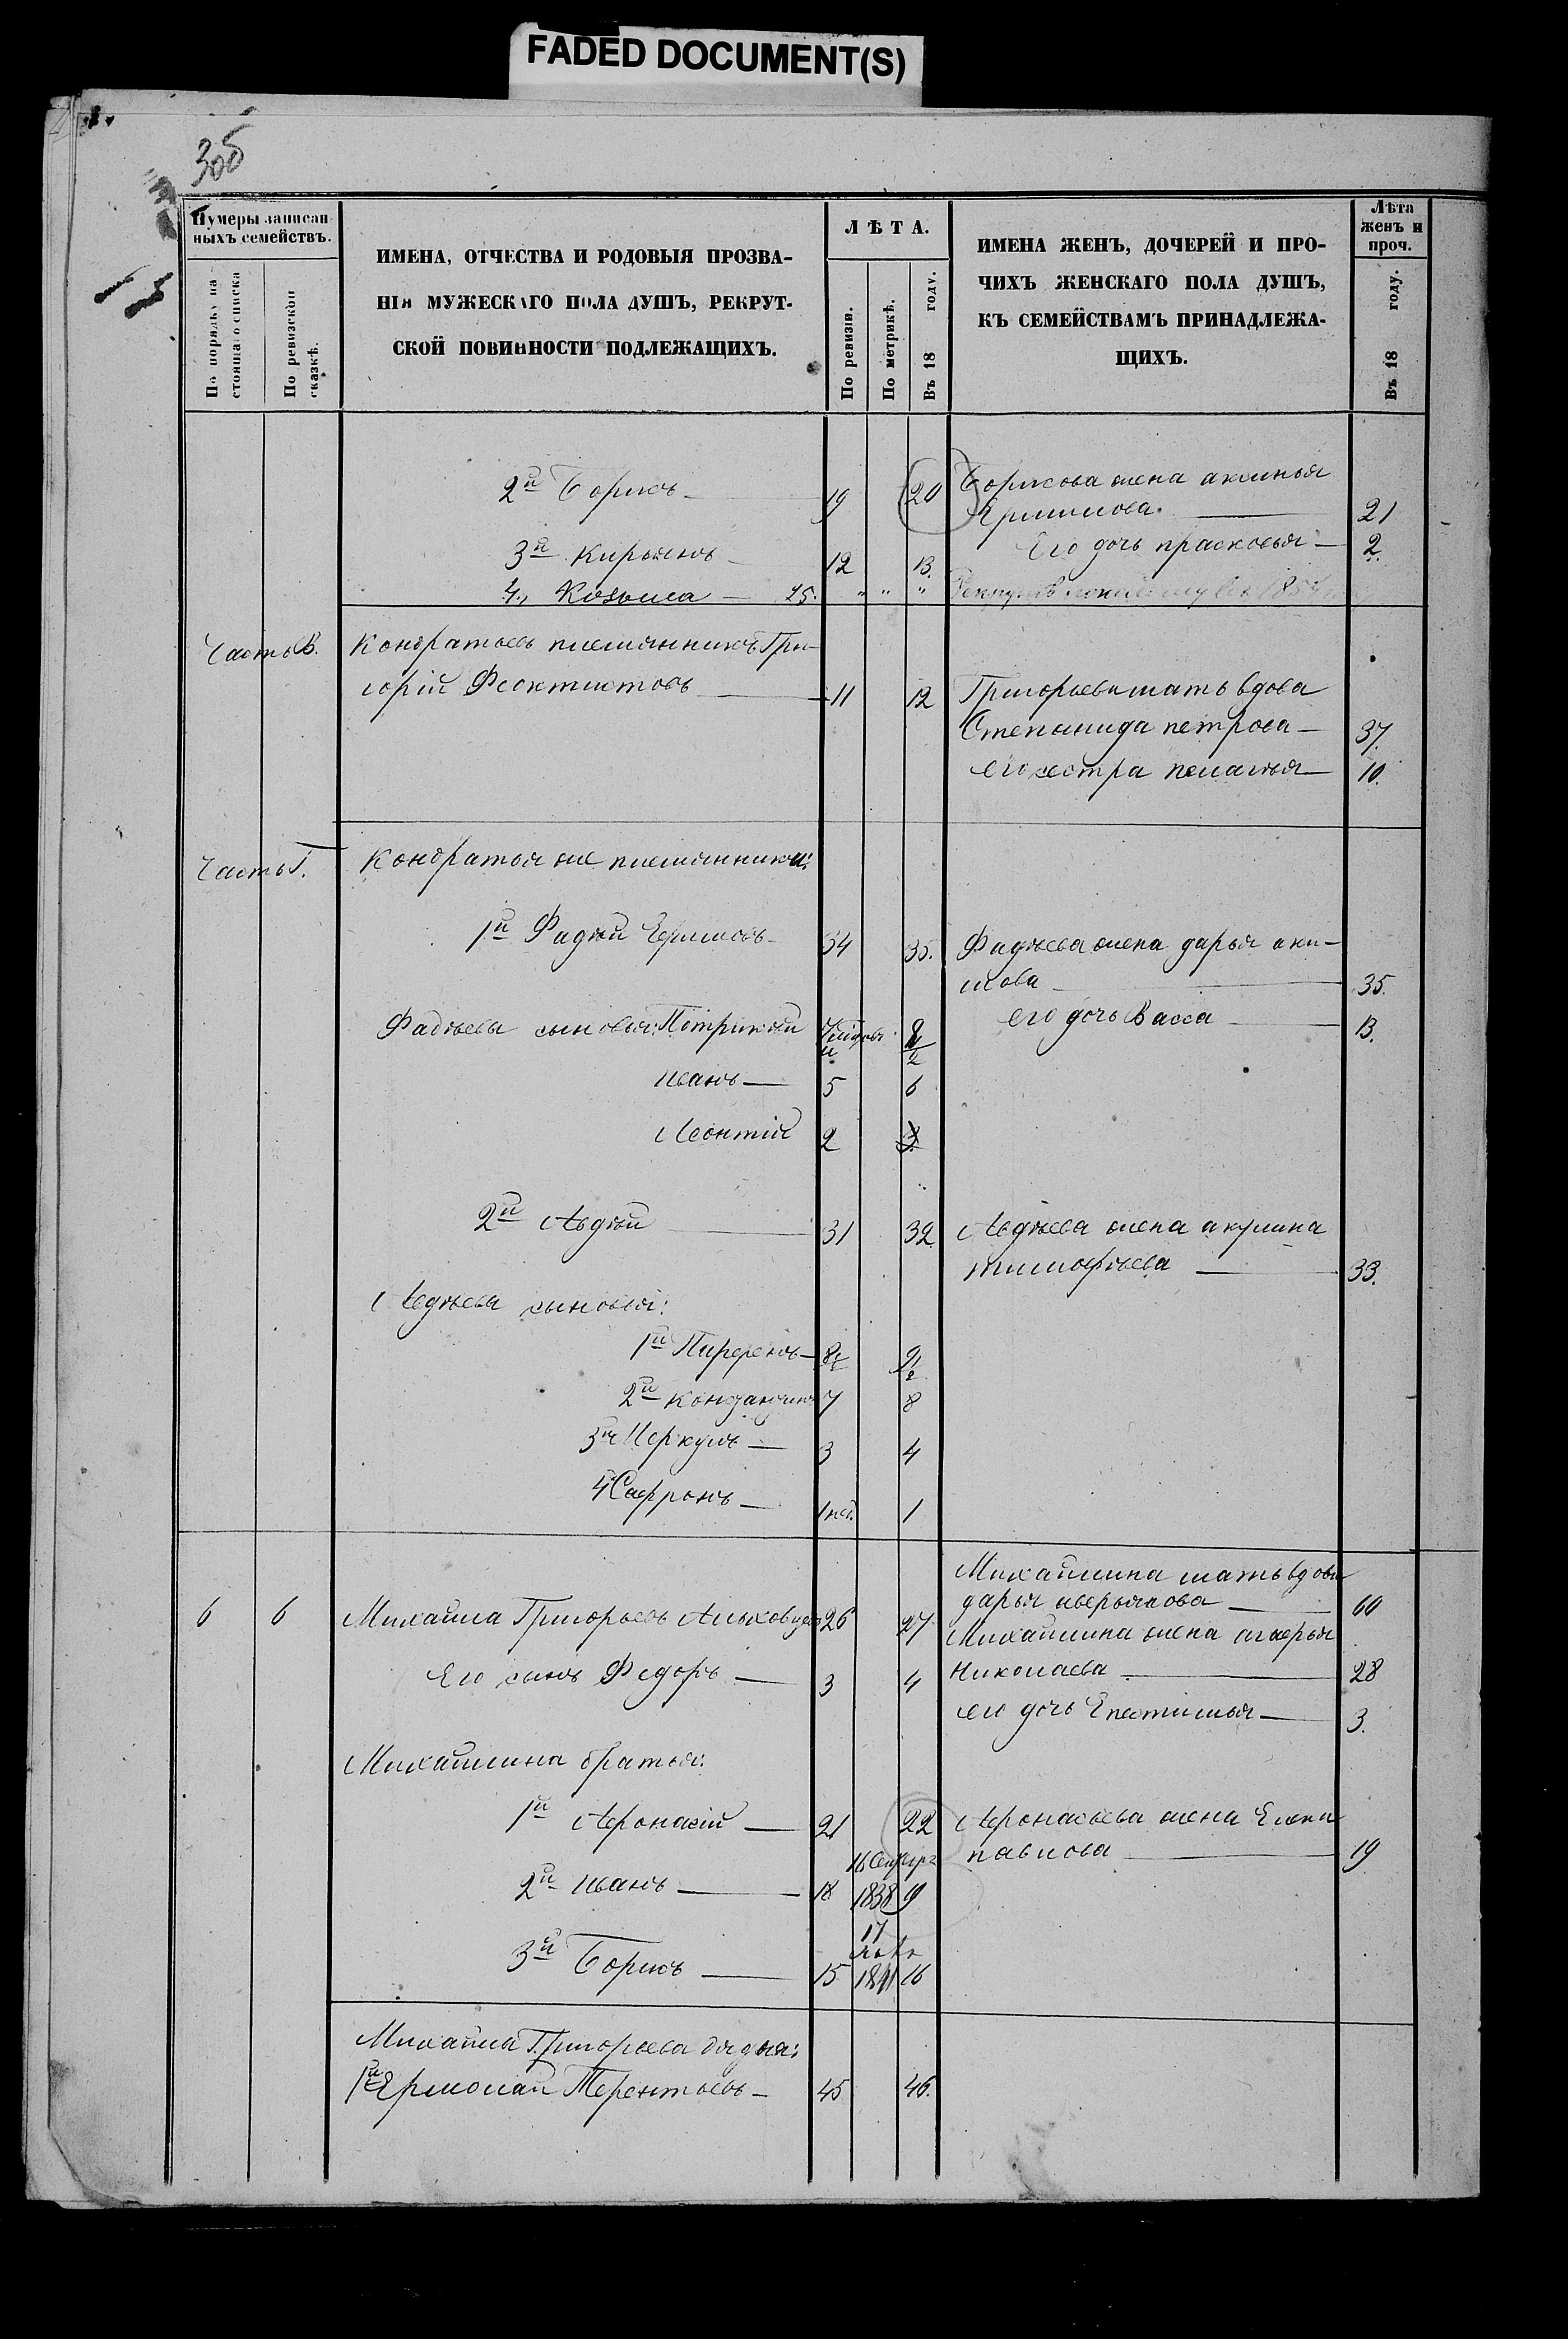 FADED DOCUMENT(S)
306
Нумеры записан-
ныхъ семействъ.
По порядку на-
стоящаго списка
По ревизской
сказкѣ.
ИМЕНА, ОТЧЕСТВА И РОДОВЫЯ ПРОЗВА-
НІЯ МУЖЕСКАГО ПОЛА ДУШЪ, РЕКРУТ-
СКОЙ ПОВИННОСТИ ПОДЛЕЖАЩИХЪ.
ЛѢТА.
По ревизіи.
По метрикѣ.
Въ 18 году.
ИМЕНА ЖЕНЪ, ДОЧЕРЕЙ И ПРО-
ЧИХЪ ЖЕНСКАГО ПОЛА ДУШЪ,
КЪ СЕМЕЙСТВАМЪ ПРИНАДЛЕЖА-
ЩИХЪ.
Лѣта
женъ и
проч.
Въ 18 году.
2й Борисъ — 19 20 Борисова жена аксинья
21
3й Кирьянъ — 12 13. Его дочь прасковья — 2.
4., Козьма — 25. " " "
Часть В. Кондратьевъ племянникъ Гри-
горій Феоктистовъ — 11 12 Григорьева мать вдова
Степанида петрова — 37.
его сестра пелагья — 10.
Часть Г. Кондратья же племянники:
1й Фадѣй Ефимовъ — 34 35. Фадѣева жена дарья аки-
мова — 35.
Фадѣевы сыновья: Патрикѣй его дочь Васса — 13.
иванъ — 5 6
Леонтій 2 3
2й Авдѣй — 31 32 Авдѣева жена акулина
тимофѣева — 33.
Авдѣевы сыновья:
1й 8½ 9½
2й 7 8
3й Меркулъ — 3 4
4 Сафронъ — 1 нед. 1
Михайлина мать вдова
дарья аверьянова — 60
6 6 Михайла Григорьевъ 26 27. Михайлина жена
Его сынъ Федоръ — 3 4 Николаева — 28
его дочь Епестимья — 3.
Михайлина братья:
1й Афонасій — 21 22 Афонасьева жена Елена
павлова — 19
16
2й иванъ — 18 1838 19
17
3й Борисъ — 15 1841 16
Михайла Григорьева дядья:
1й Ермолай Терентьевъ — 45 46.